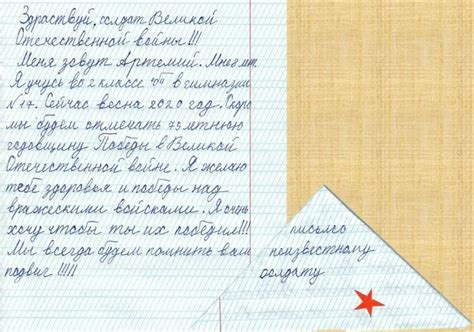 Здраствуй, солдат Великой
Отечественной войны!!!
Меня зовут Артемий. Мне 8 лет.
Я учусь во 2 классе в гимназии
№ 17. Сейчас весна 2020 год. Скоро
мы будем отмечать 75 летнюю
годовщину Победы в Великой
Отечественной войне. Я желаю
тебе здоровья и победы над
вражескими войсками. Я очень
хочу чтобы ты их победил!!!
Мы всегда будем помнить ваш
подвиг !!!!!
письмо
неизвестному
солдату